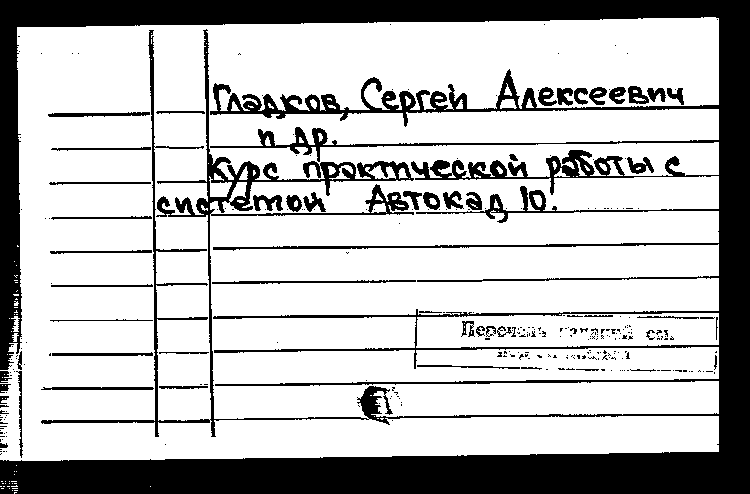 Гладков, Сергей Алексеевич
и др.
Курс практической работы с
системой Автокад 10.
Перечень изданий см.